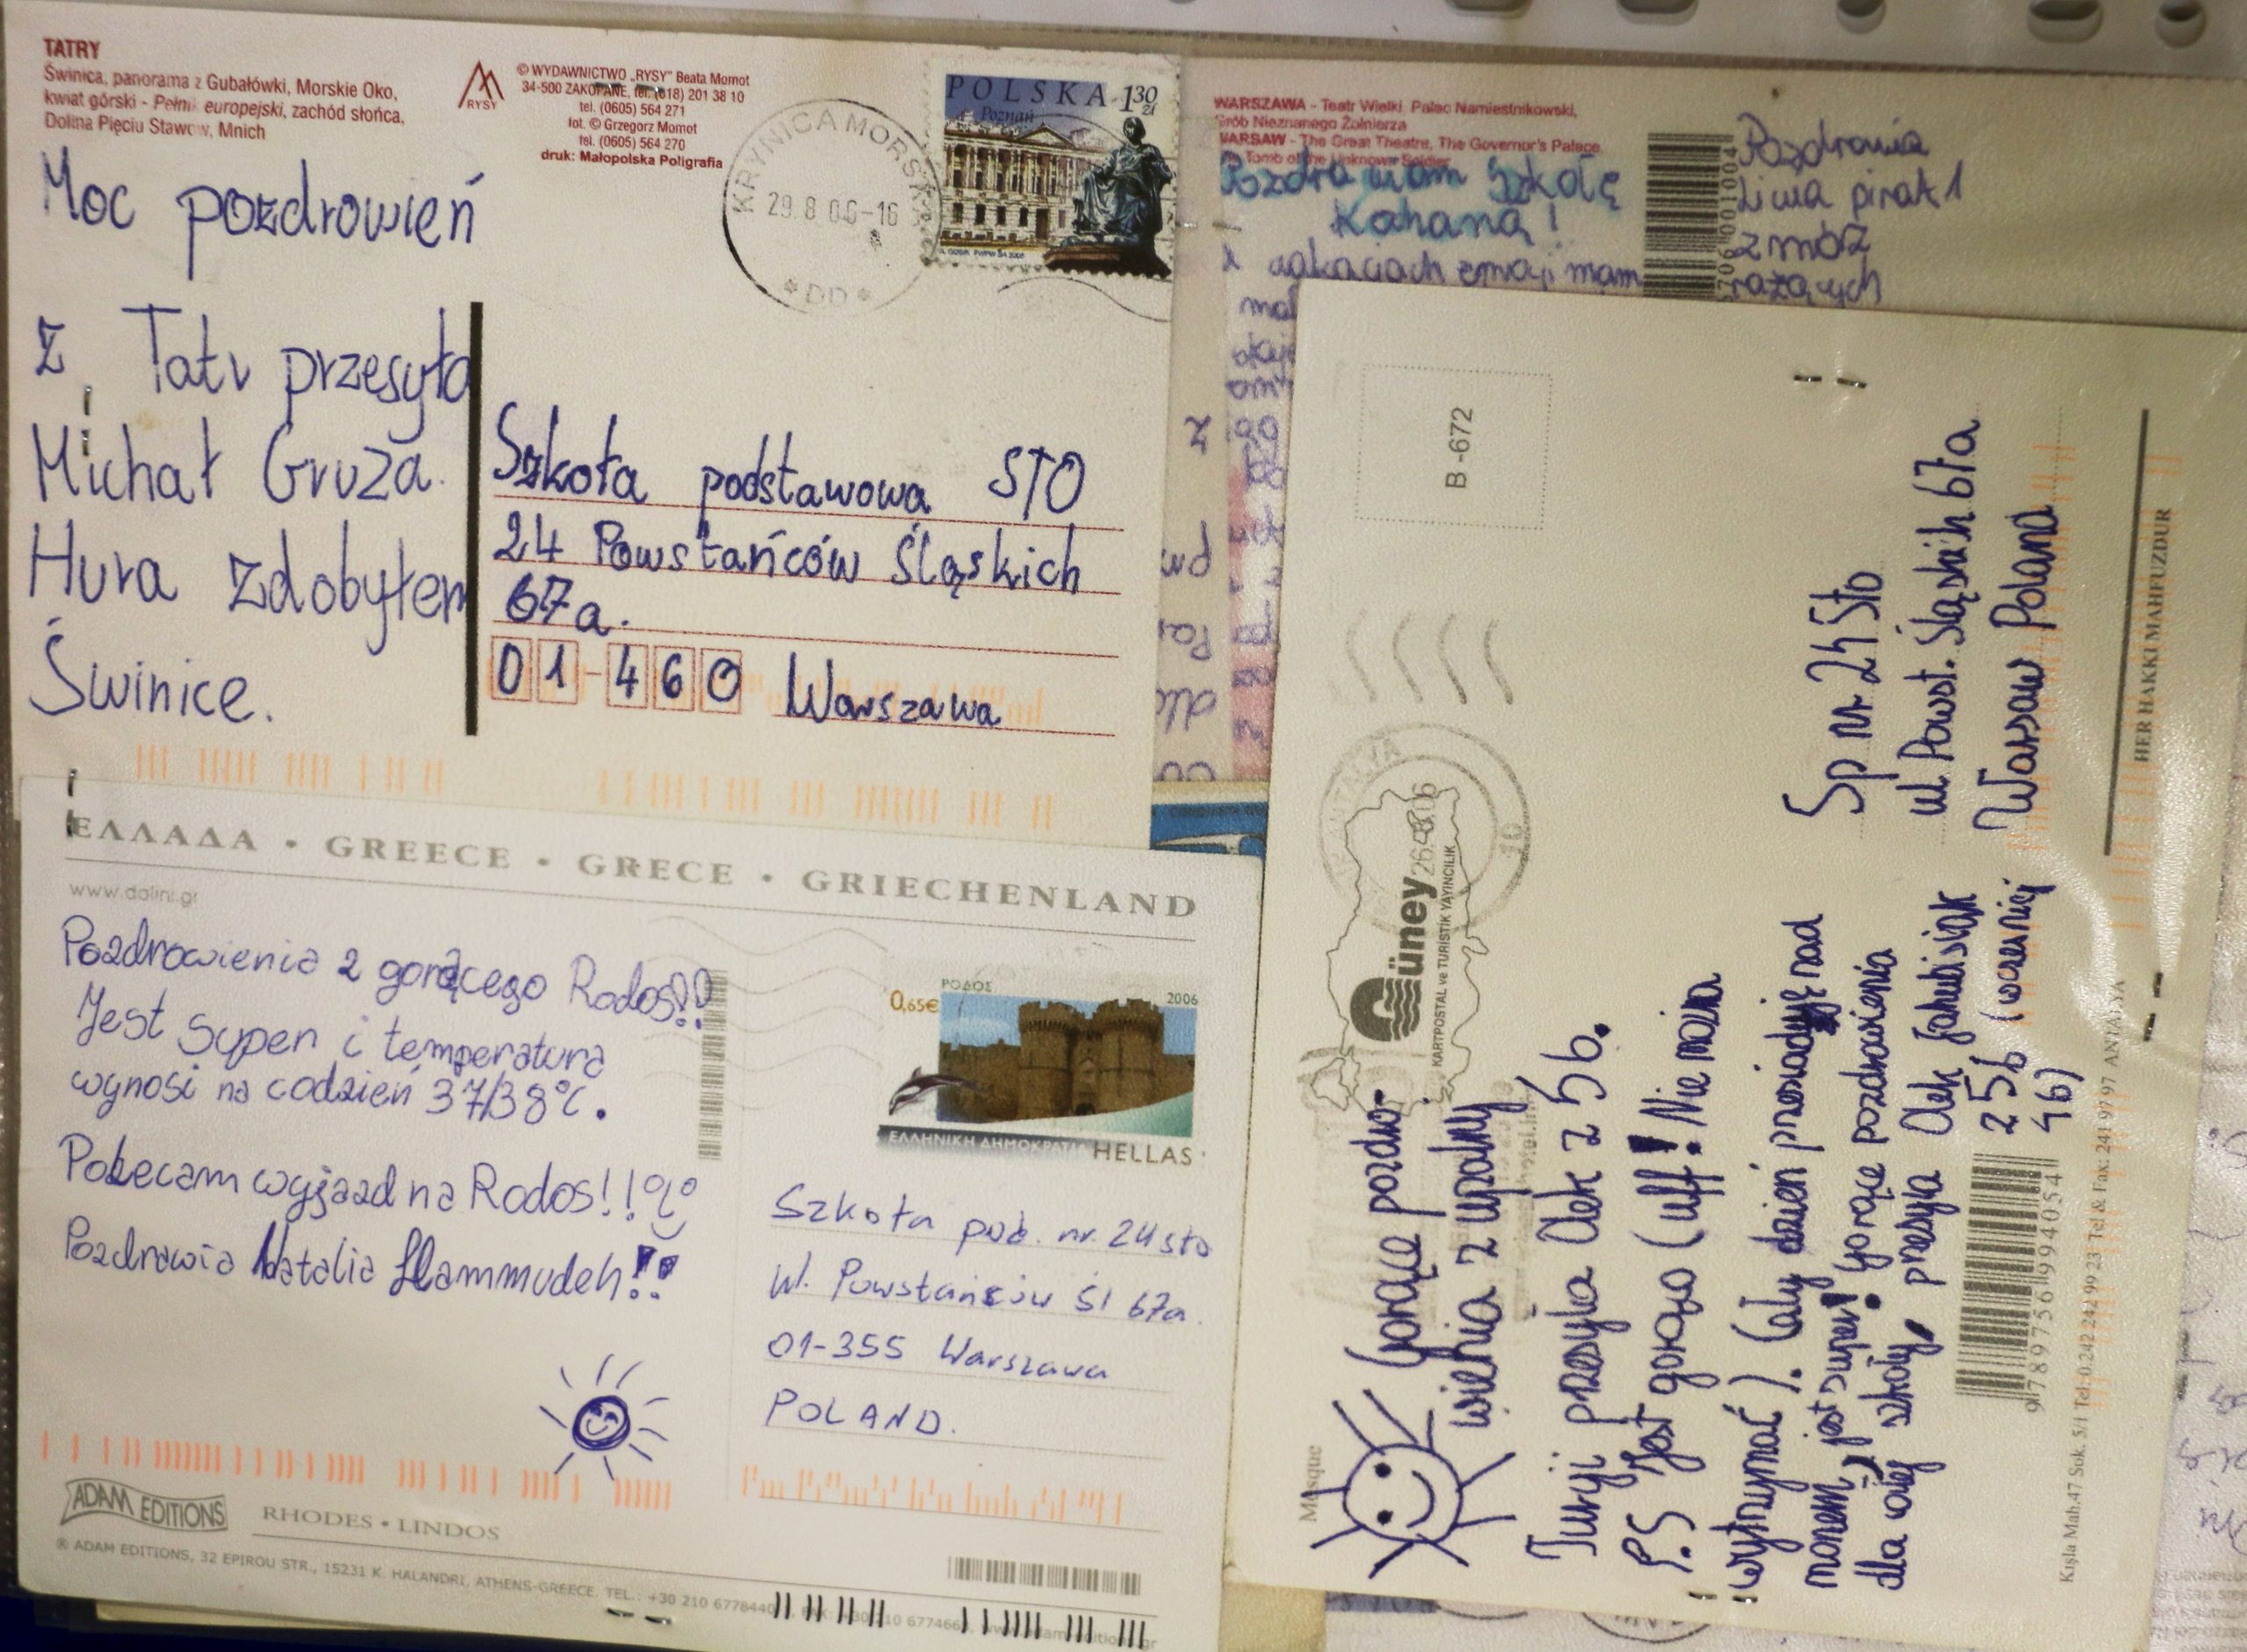 TATRY
Świnica, panorama z Gubałówki, Morskie Oko,
kwiat górski - Pełnik europejski, zachód słońca,
Dolina Pięciu Stawów, Mnich
RYSY
© WYDAWNICTWO „RYSY" Beata Momot
34-500 ZAKOPANE, tel. (018) 201 38 10
tel. (0605) 564 271
fot. © Grzegorz Momot
tel. (0605) 564 270
druk: Małopolska Poligrafia
KRYNICA MORSKA
29.8.06-16
*DD*
POLSKA 130 zł
Poznań
Moc pozdrowień
z Tatr przesyła
Michał Gruza.
Hura zdobyłem
Świnice.
Szkoła podstawowa STO
24 Powstańców Śląskich
67a.
01-460 Warszawa
WARSZAWA - Teatr Wielki, Pałac Namiestnikowski,
Grób Nieznanego Żołnierza
WARSAW - The Great Theatre, The Governor's Palace,
Tomb of the Unknown Soldier
Pozdrawiam Szkołę
Kohaną!
mam
Pozdrowia
pirat
z mórz
ΕΛΛΑΔΑ • GREECE • GRECE • GRIECHENLAND
www.dalini.gr
Pozdrowienia z gorącego Rodos!!
Jest super i temperatura
wynosi na codzień 37/38°C.
Polecam wyjazd na Rodos!!
Pozdrawia Natalia Hammudeh!!
0,65€ ΡΟΔΟΣ 2006
ΕΛΛΗΝΙΚΗ ΔΗΜΟΚΡΑΤΙΑ HELLAS
Szkoła pod. nr. 24 sto
Ul. Powstańców Śl 67a.
01-355 Warszawa
POLAND.
ADAM EDITIONS
RHODES • LINDOS
® ADAM EDITIONS, 32 EPIROU STR., 15231 K. HALANDRI, ATHENS-GREECE. TEL.: +30 210 6778440
B-672
ANTALYA
26.8.06
16
Güney
KARTPOSTAL ve TURİSTİK YAYINCILIK
Mosque
Gorące pozdro-
wienia z upalny
Turcji przesyła Olek z 5b.
P.S Jest gorąco (uff! Nie można
wytrzymać). Cały dzień przesiaduję nad
morzem, jest super! Gorące pozdrowienia
dla całej szkoły, przesyła Olek Jakubisiak
z 5b (wcześniej
4b)
Sp nr 24 Sto
ul. Powst. Śląskich 67a
Warsaw Poland
9 789756 994054
HER HAKKI MAHFUZDUR
Kışla Mah.47 Sok. 5/1 Tel: 0.242 242 99 23 Tel & Fax: 241 97 97 ANTALYA